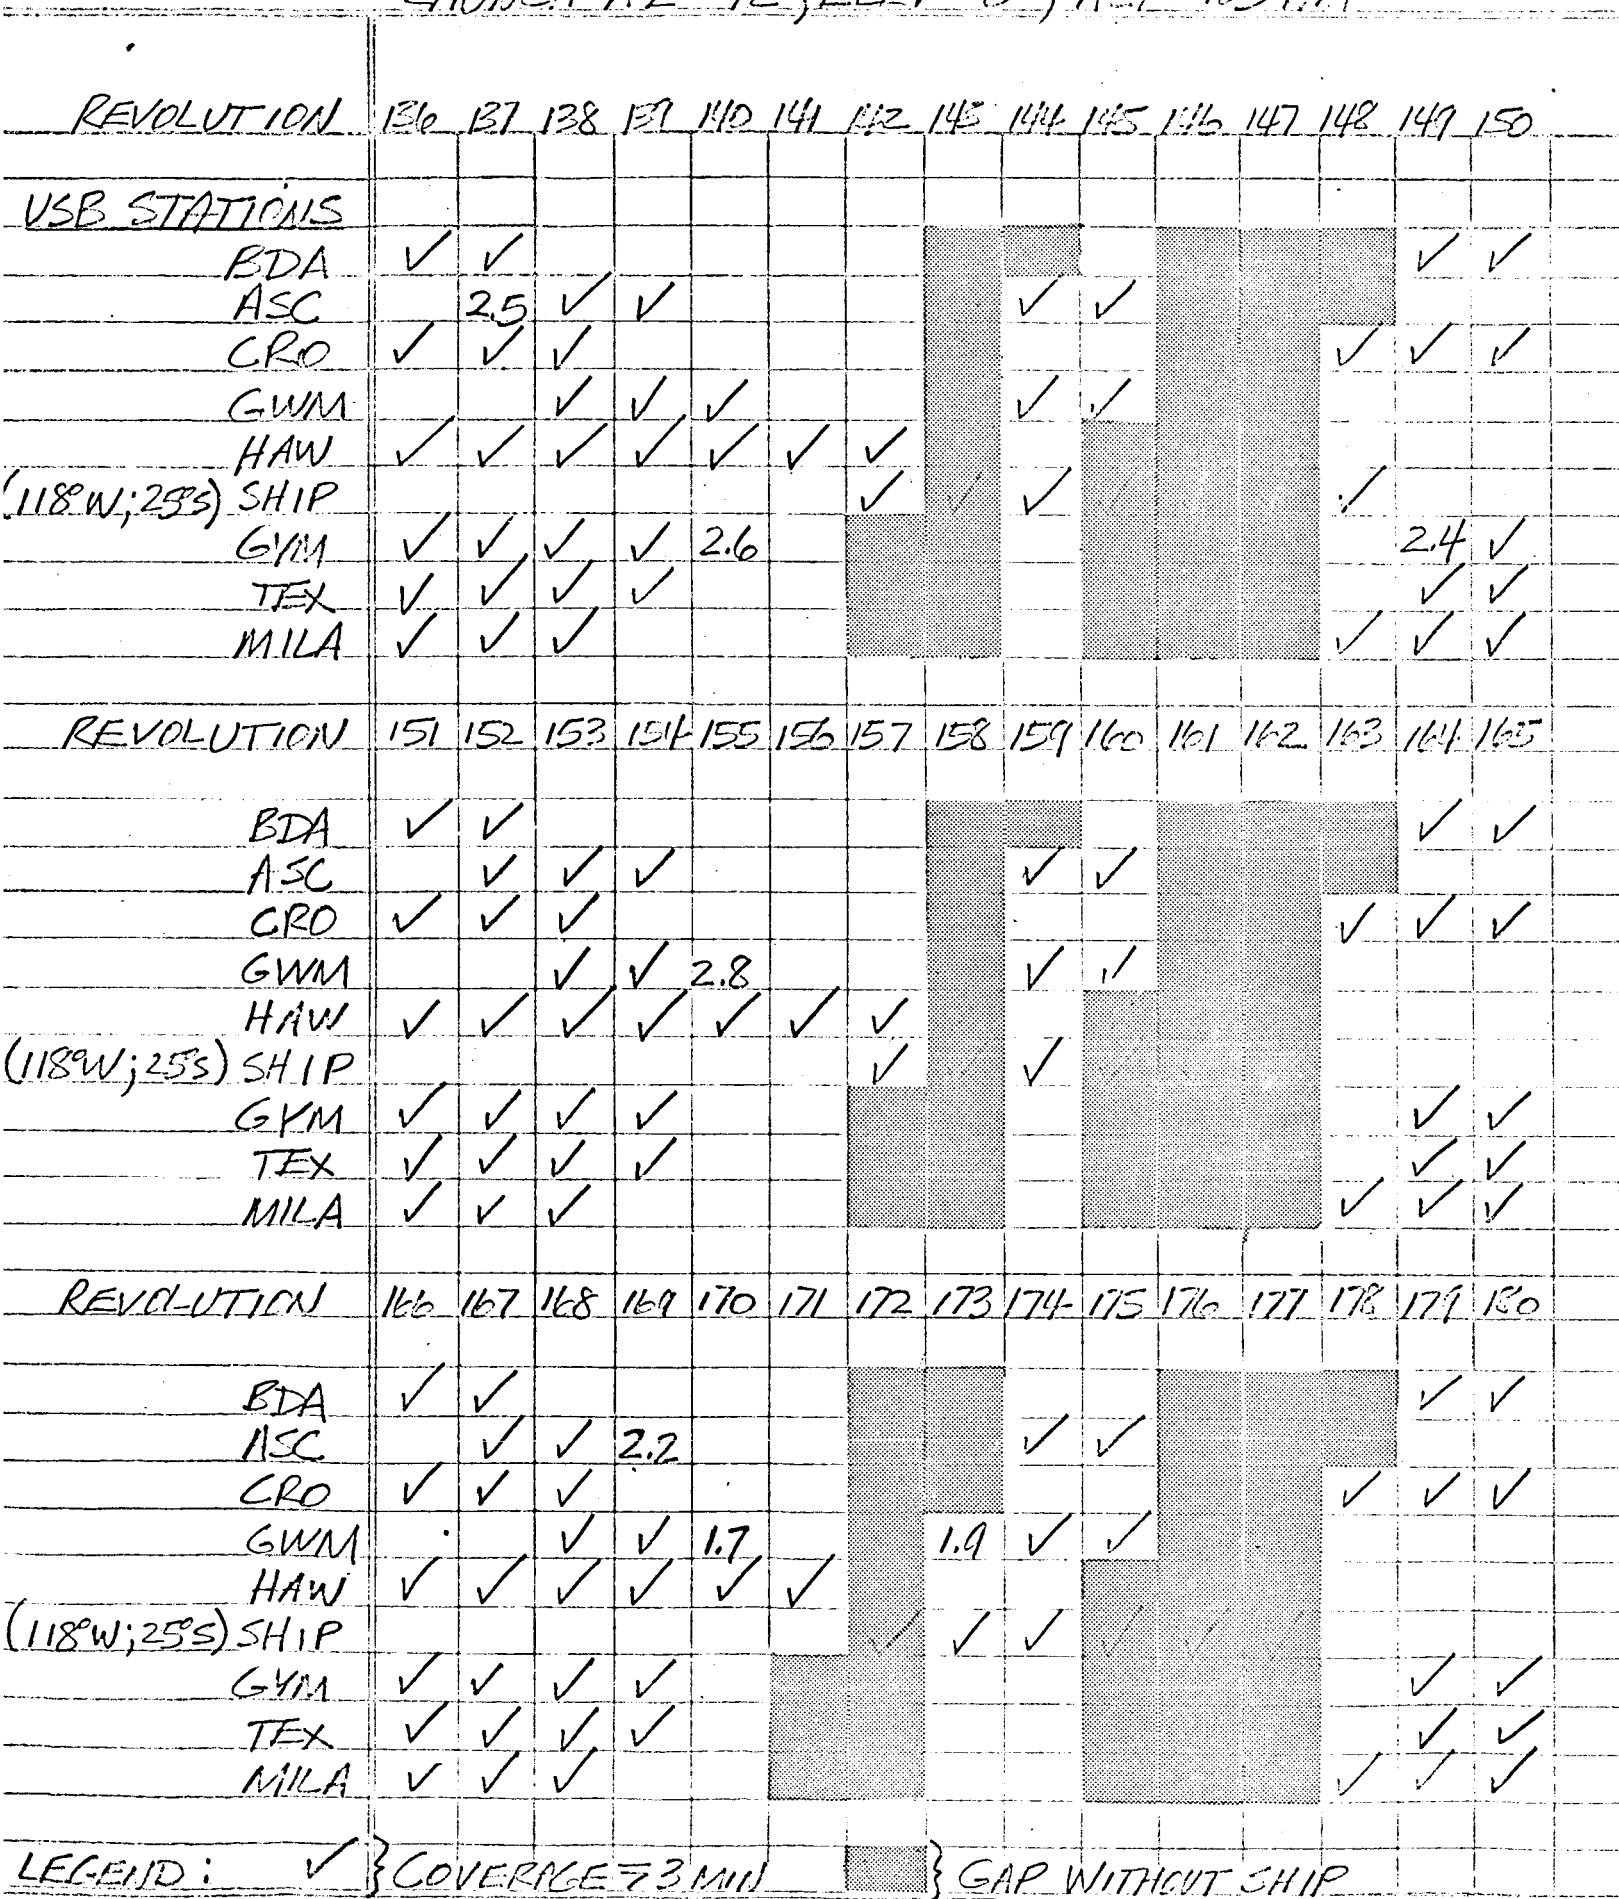 REVOLUTION 136 137 138 139 140 141 142 143 144 145 146 147 148 149 150
USB STATIONS
BDA ✓ ✓ ✓ ✓
ASC 2.5 ✓ ✓ ✓ ✓
CRO ✓ ✓ ✓ ✓ ✓ ✓
GWM ✓ ✓ ✓ ✓ ✓
HAW ✓ ✓ ✓ ✓ ✓ ✓ ✓
(118°W;25°S) SHIP ✓ ✓ ✓ ✓
GYM ✓ ✓ ✓ ✓ 2.6 2.4 ✓
TEX ✓ ✓ ✓ ✓ ✓ ✓
MILA ✓ ✓ ✓ ✓ ✓ ✓
REVOLUTION 151 152 153 154 155 156 157 158 159 160 161 162 163 164 165
BDA ✓ ✓ ✓ ✓
ASC ✓ ✓ ✓ ✓ ✓
CRO ✓ ✓ ✓ ✓ ✓ ✓
GWM ✓ ✓ 2.8 ✓ ✓
HAW ✓ ✓ ✓ ✓ ✓ ✓ ✓
(118°W;25°S) SHIP ✓ ✓
GYM ✓ ✓ ✓ ✓ ✓ ✓
TEX ✓ ✓ ✓ ✓ ✓ ✓
MILA ✓ ✓ ✓ ✓ ✓ ✓
REVOLUTION 166 167 168 169 170 171 172 173 174 175 176 177 178 179 180
BDA ✓ ✓ ✓ ✓
ASC ✓ ✓ 2.2 ✓ ✓
CRO ✓ ✓ ✓ ✓ ✓ ✓
GWM ✓ ✓ 1.7 1.9 ✓ ✓
HAW ✓ ✓ ✓ ✓ ✓ ✓
(118°W;25°S) SHIP ✓ ✓ ✓ ✓ ✓ ✓
GYM ✓ ✓ ✓ ✓ ✓ ✓
TEX ✓ ✓ ✓ ✓ ✓ ✓
MILA ✓ ✓ ✓ ✓ ✓ ✓
LEGEND: ✓ } COVERAGE ≥ 3 MIN } GAP WITHOUT SHIP